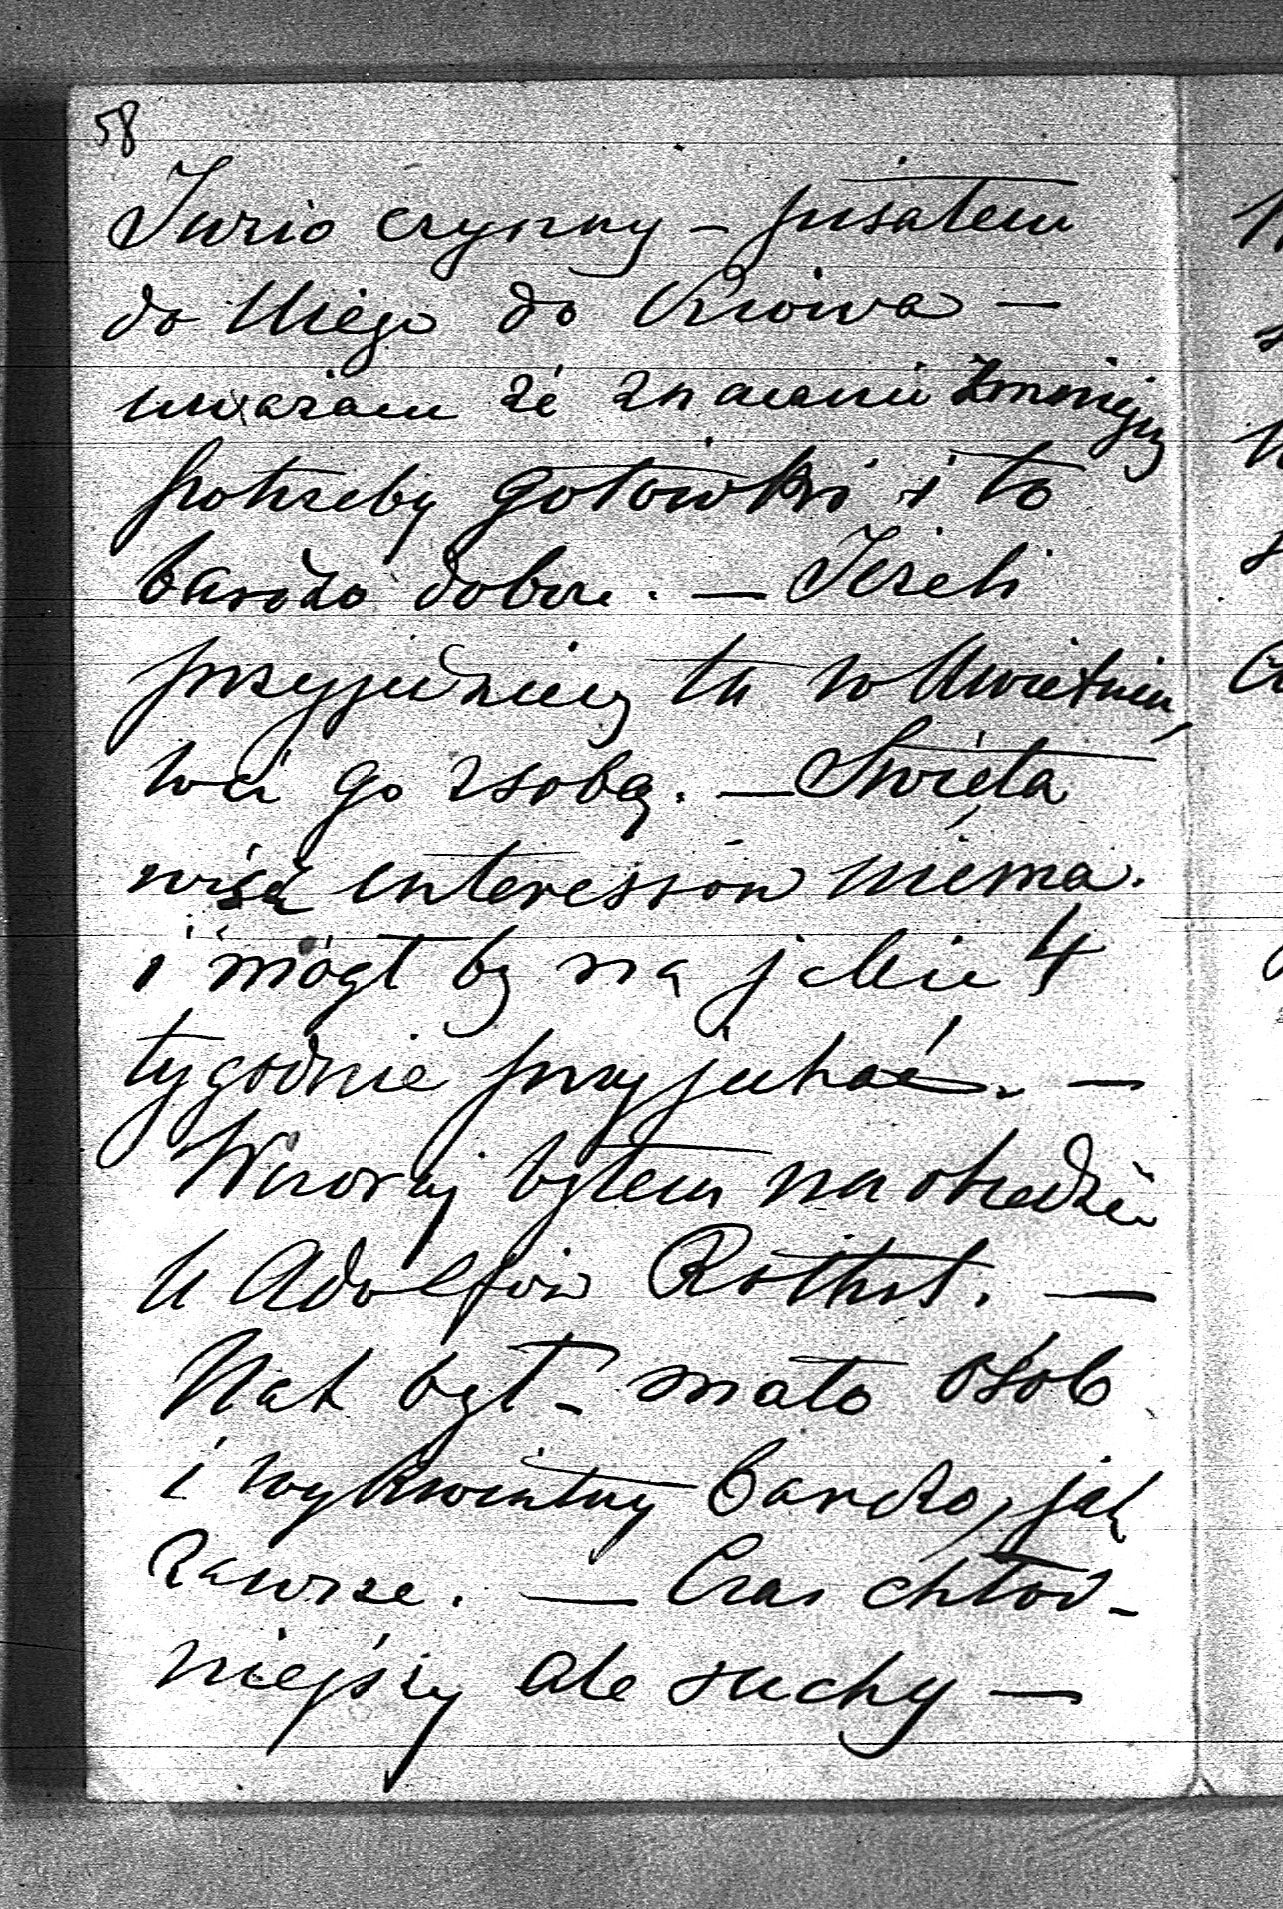 58
Jurio czynny – pisałem
do Niego do Kijowa –
uważam że znacznie zmniejszy
potrzeby gotówki i to
bardzo dobrze. – Jeżeli
przyjedziecie tu w Kwietniu,
weź go z sobą. – Święta
więc interessów niema.
i mógł by na jakie 4
tygodnie przyjechać. –
Wczoraj byłem na obiedzie
u Adolfów Roths. –
był – mało osób
i wykwintny bardzo, jak
zawsze. – Czas chłod-
niejszy ale suchy –